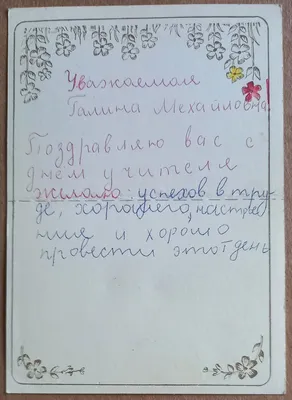 Уважаемая
Галина Мехайловна
Поздравляю вас с
днем учителя
желаю: успехов в тру-
де, хорошего, настрое
ния и хорошо
провести этот день